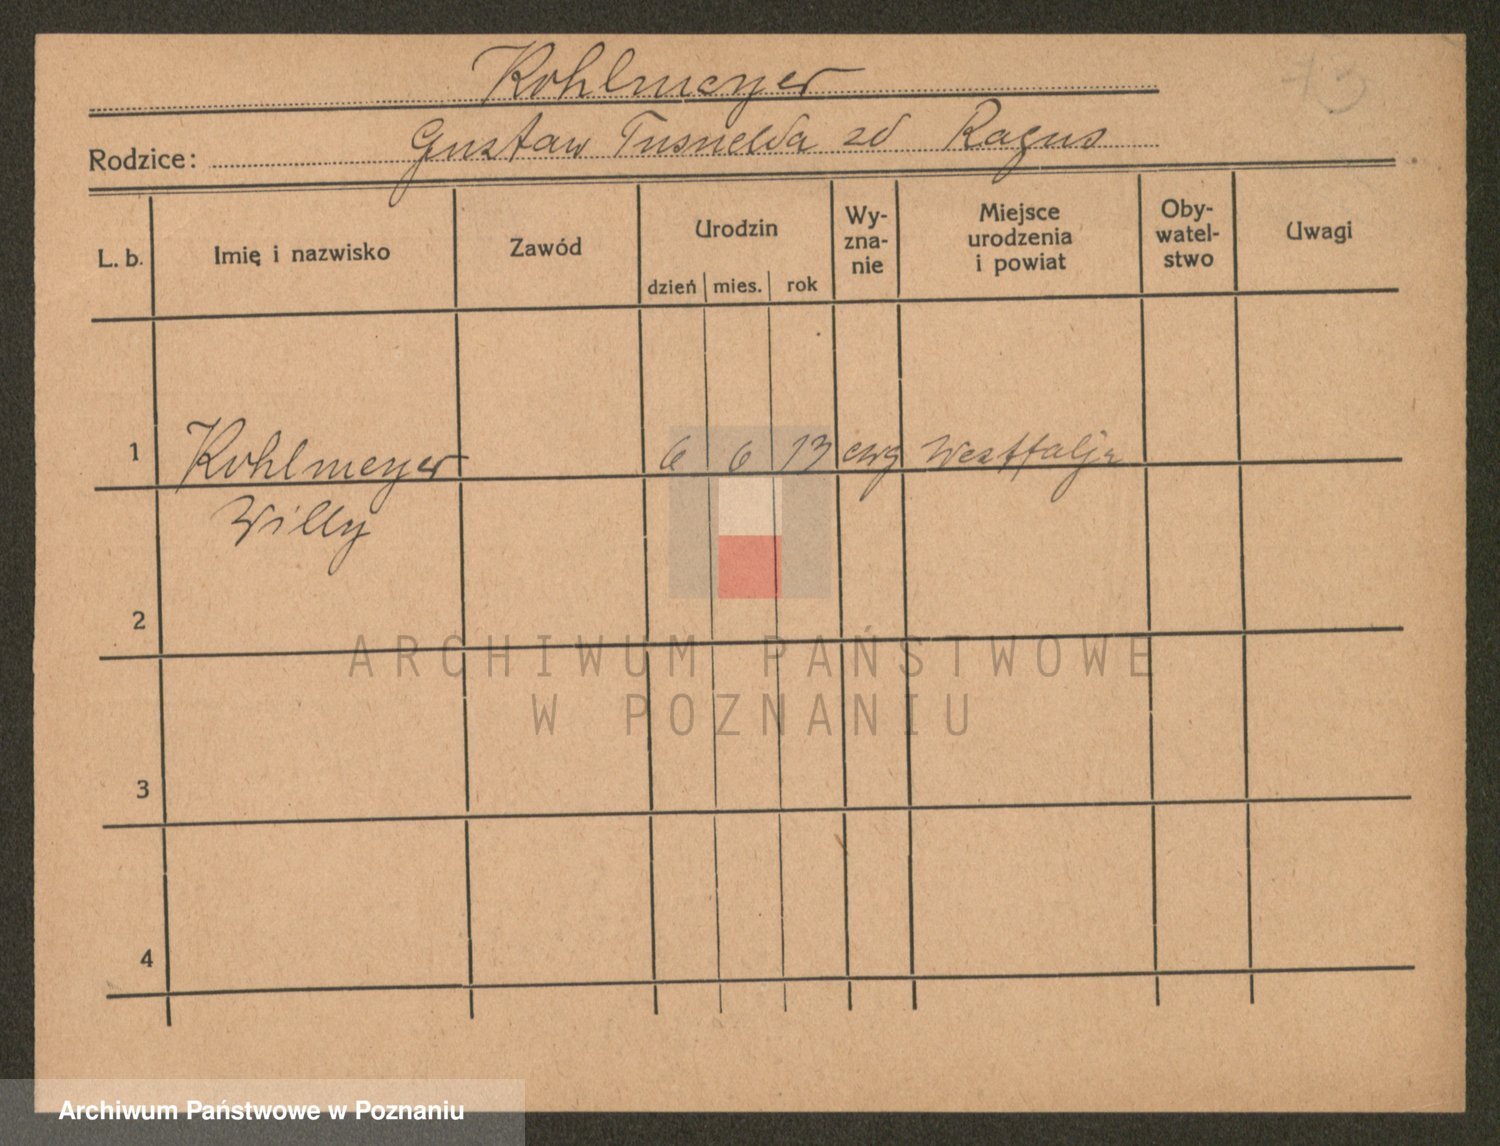 Kohlmeyer
73
Rodzice: Gustaw Tusnelda zd Ragus
L. b. Imię i nazwisko Zawód Urodzin dzień mies. rok Wy-zna-nie Miejsce urodzenia i powiat Oby-watel-stwo Uwagi
1 Kohlmeyer 6 6 13 ewg Westfalja
Willy
2
3
4
ARCHIWUM PAŃSTWOWE
W POZNANIU
Archiwum Państwowe w Poznaniu